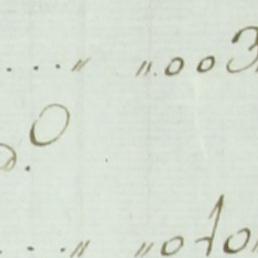 ....〃 〃003
d. O
....〃 〃010